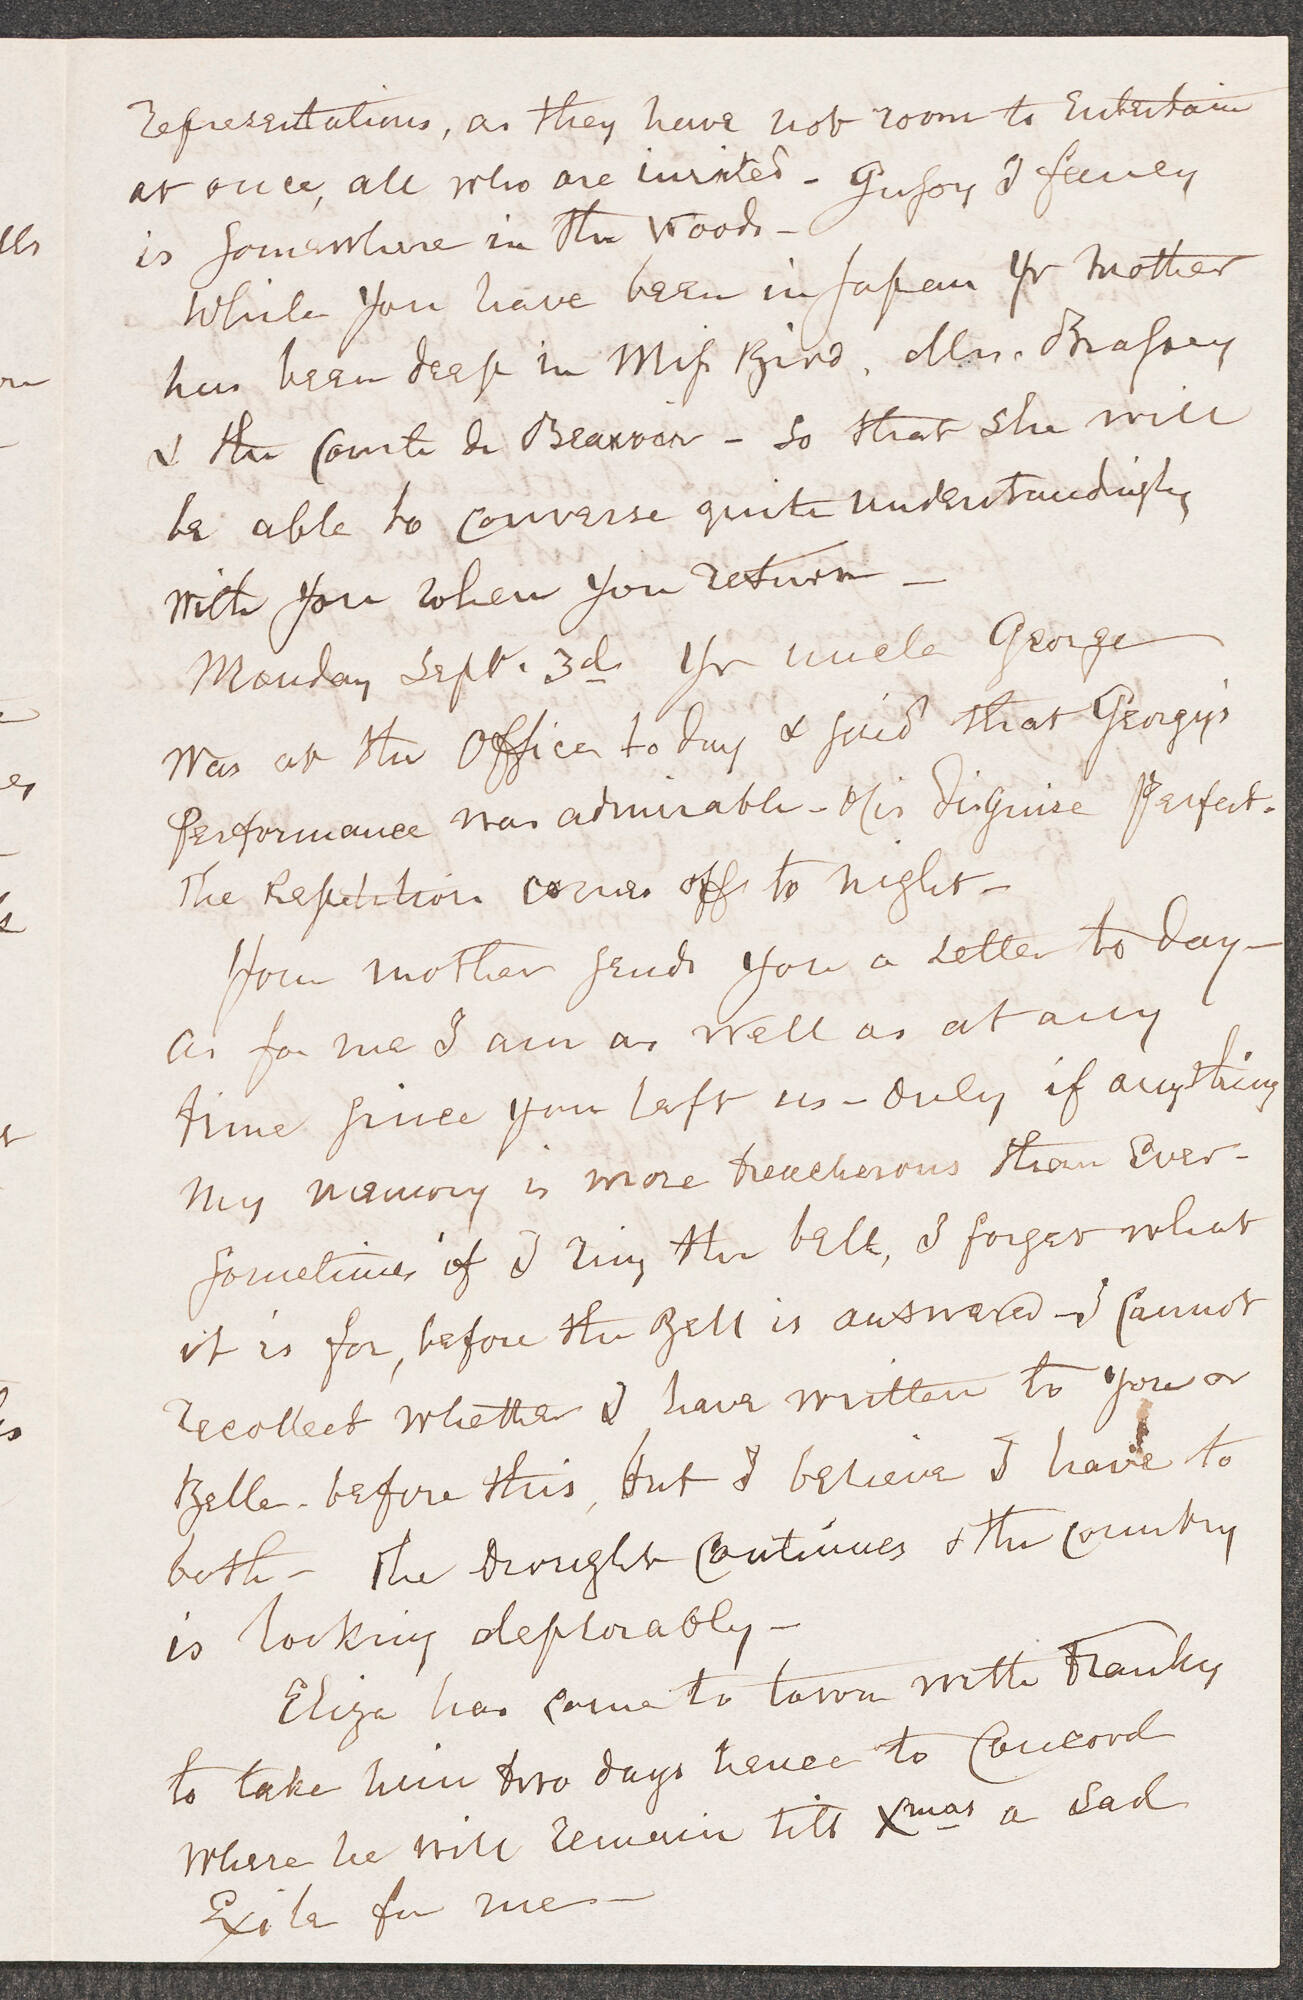 representations, as they have not room to Entertain
at once, all who are invited - Gussy I fancy
is somewhere in the Woods -
While you have been in Japan Yr Mother
has been deep in Miss Bird, Mrs. Brassey
& the Comte de Beauvoir - so that she will
be able to converse quite understandingly
with you when you return -
Monday Sept. 3d. Yr uncle George
was at the Office to day & said that Georgy's
Performance was admirable - His disguise Perfect.
The Repetition comes off to night -
Your mother sends you a Letter to day -
as for me I am as well as at any
time since you left us - Only if anything
my memory is more treacherous than Ever -
Sometimes if I ring the bell, I forget what
it is for, before the Bell is answered - I Cannot
recollect whether I have written to you or
Belle - before this, but I believe I have to
both - The drought Continues & the country
is looking deplorably -
Eliza has come to town with Franky
to take him two days hence to Concord
where he will remain till Xmas a sad
Exile for me -